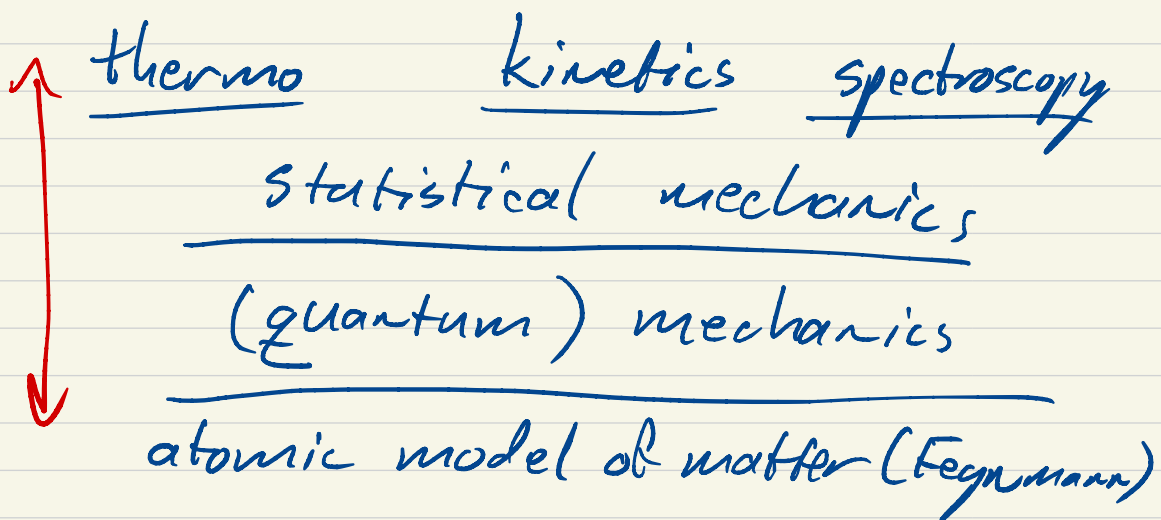 thermo kinetics spectroscopy
statistical mechanics
(quantum) mechanics
atomic model of matter (Feynmann)